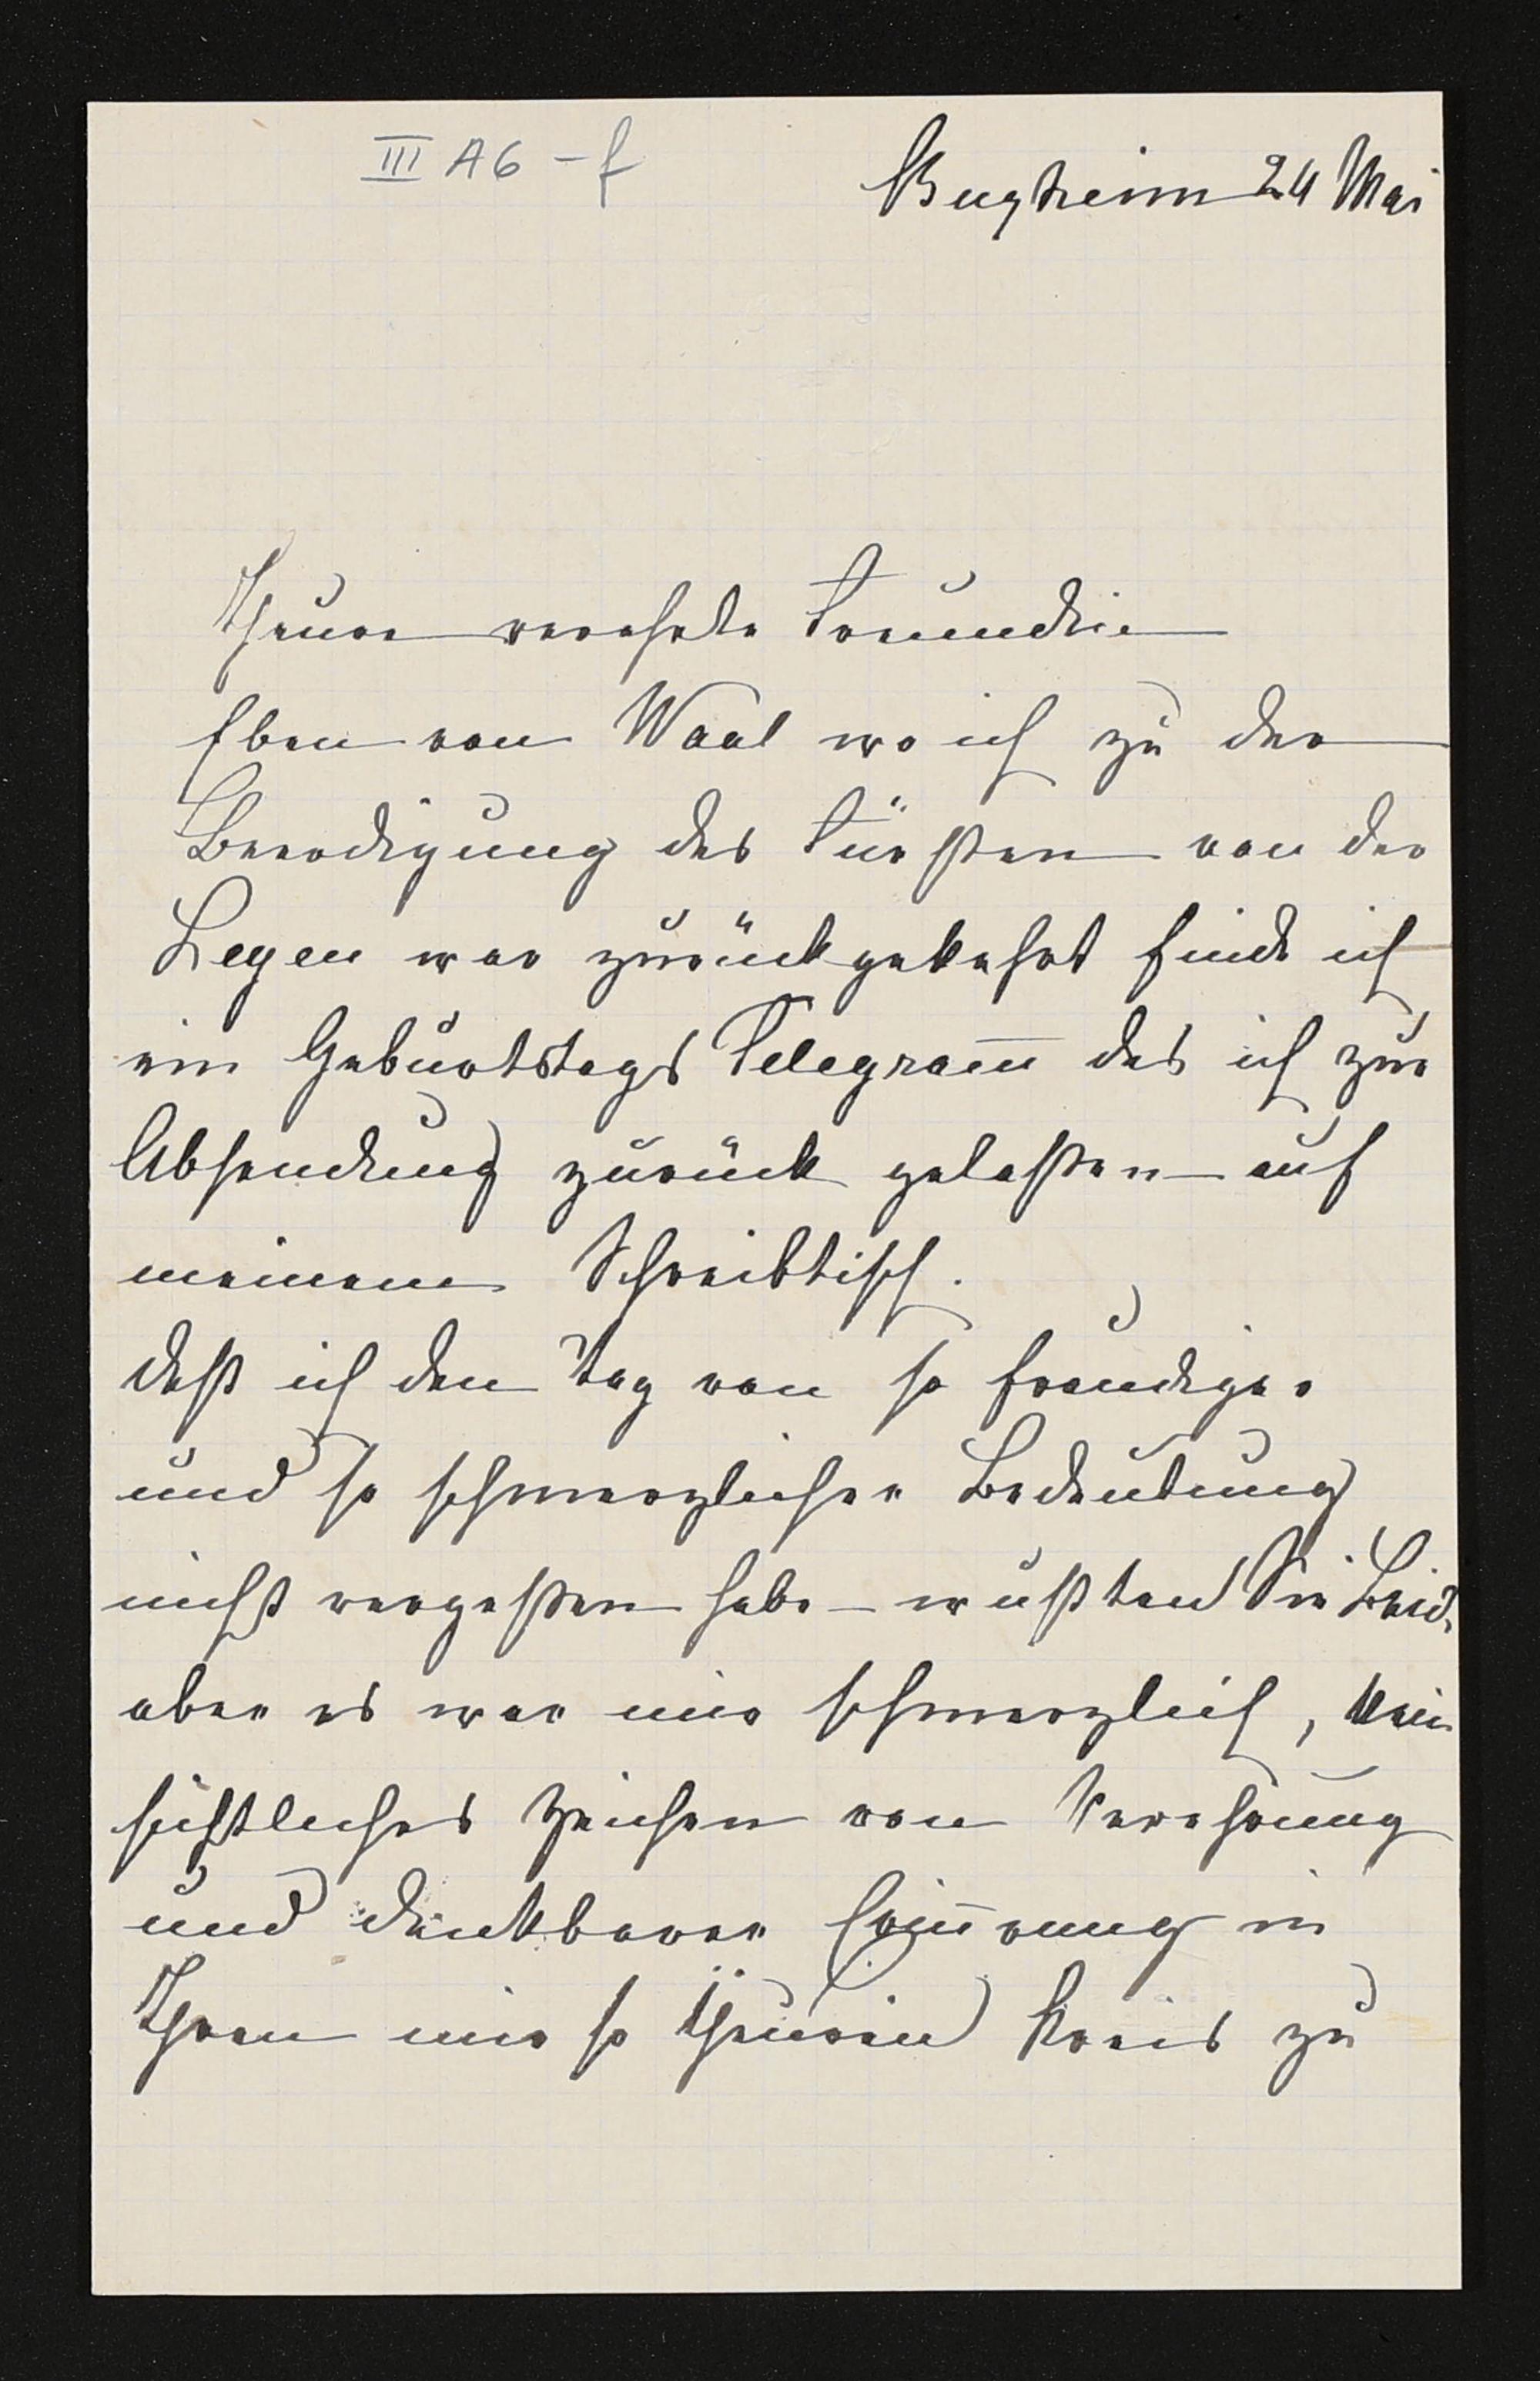 III A6 – f
Buxheim 24 Mai
Theure verehrte Freundin
Eben von Waal wo ich zu der
Beerdigung des Fürsten von der
Leyen war zurückgekehrt finde ich
ein Geburtstags Telegram̄ das ich zur
Absendung zurück gelaßen auf
meinem Schreibtisch.
daß ich den Tag von so freudiger
und so schmerzlicher Bedeutung
nicht vergeßen habe – wußten Sie Beide
aber es war mir schmerzlich, kein
sichtliches Zeichen von Verehrung
und dankbarer Erin̄erung in
Ihren mir so theuren Kreis zu